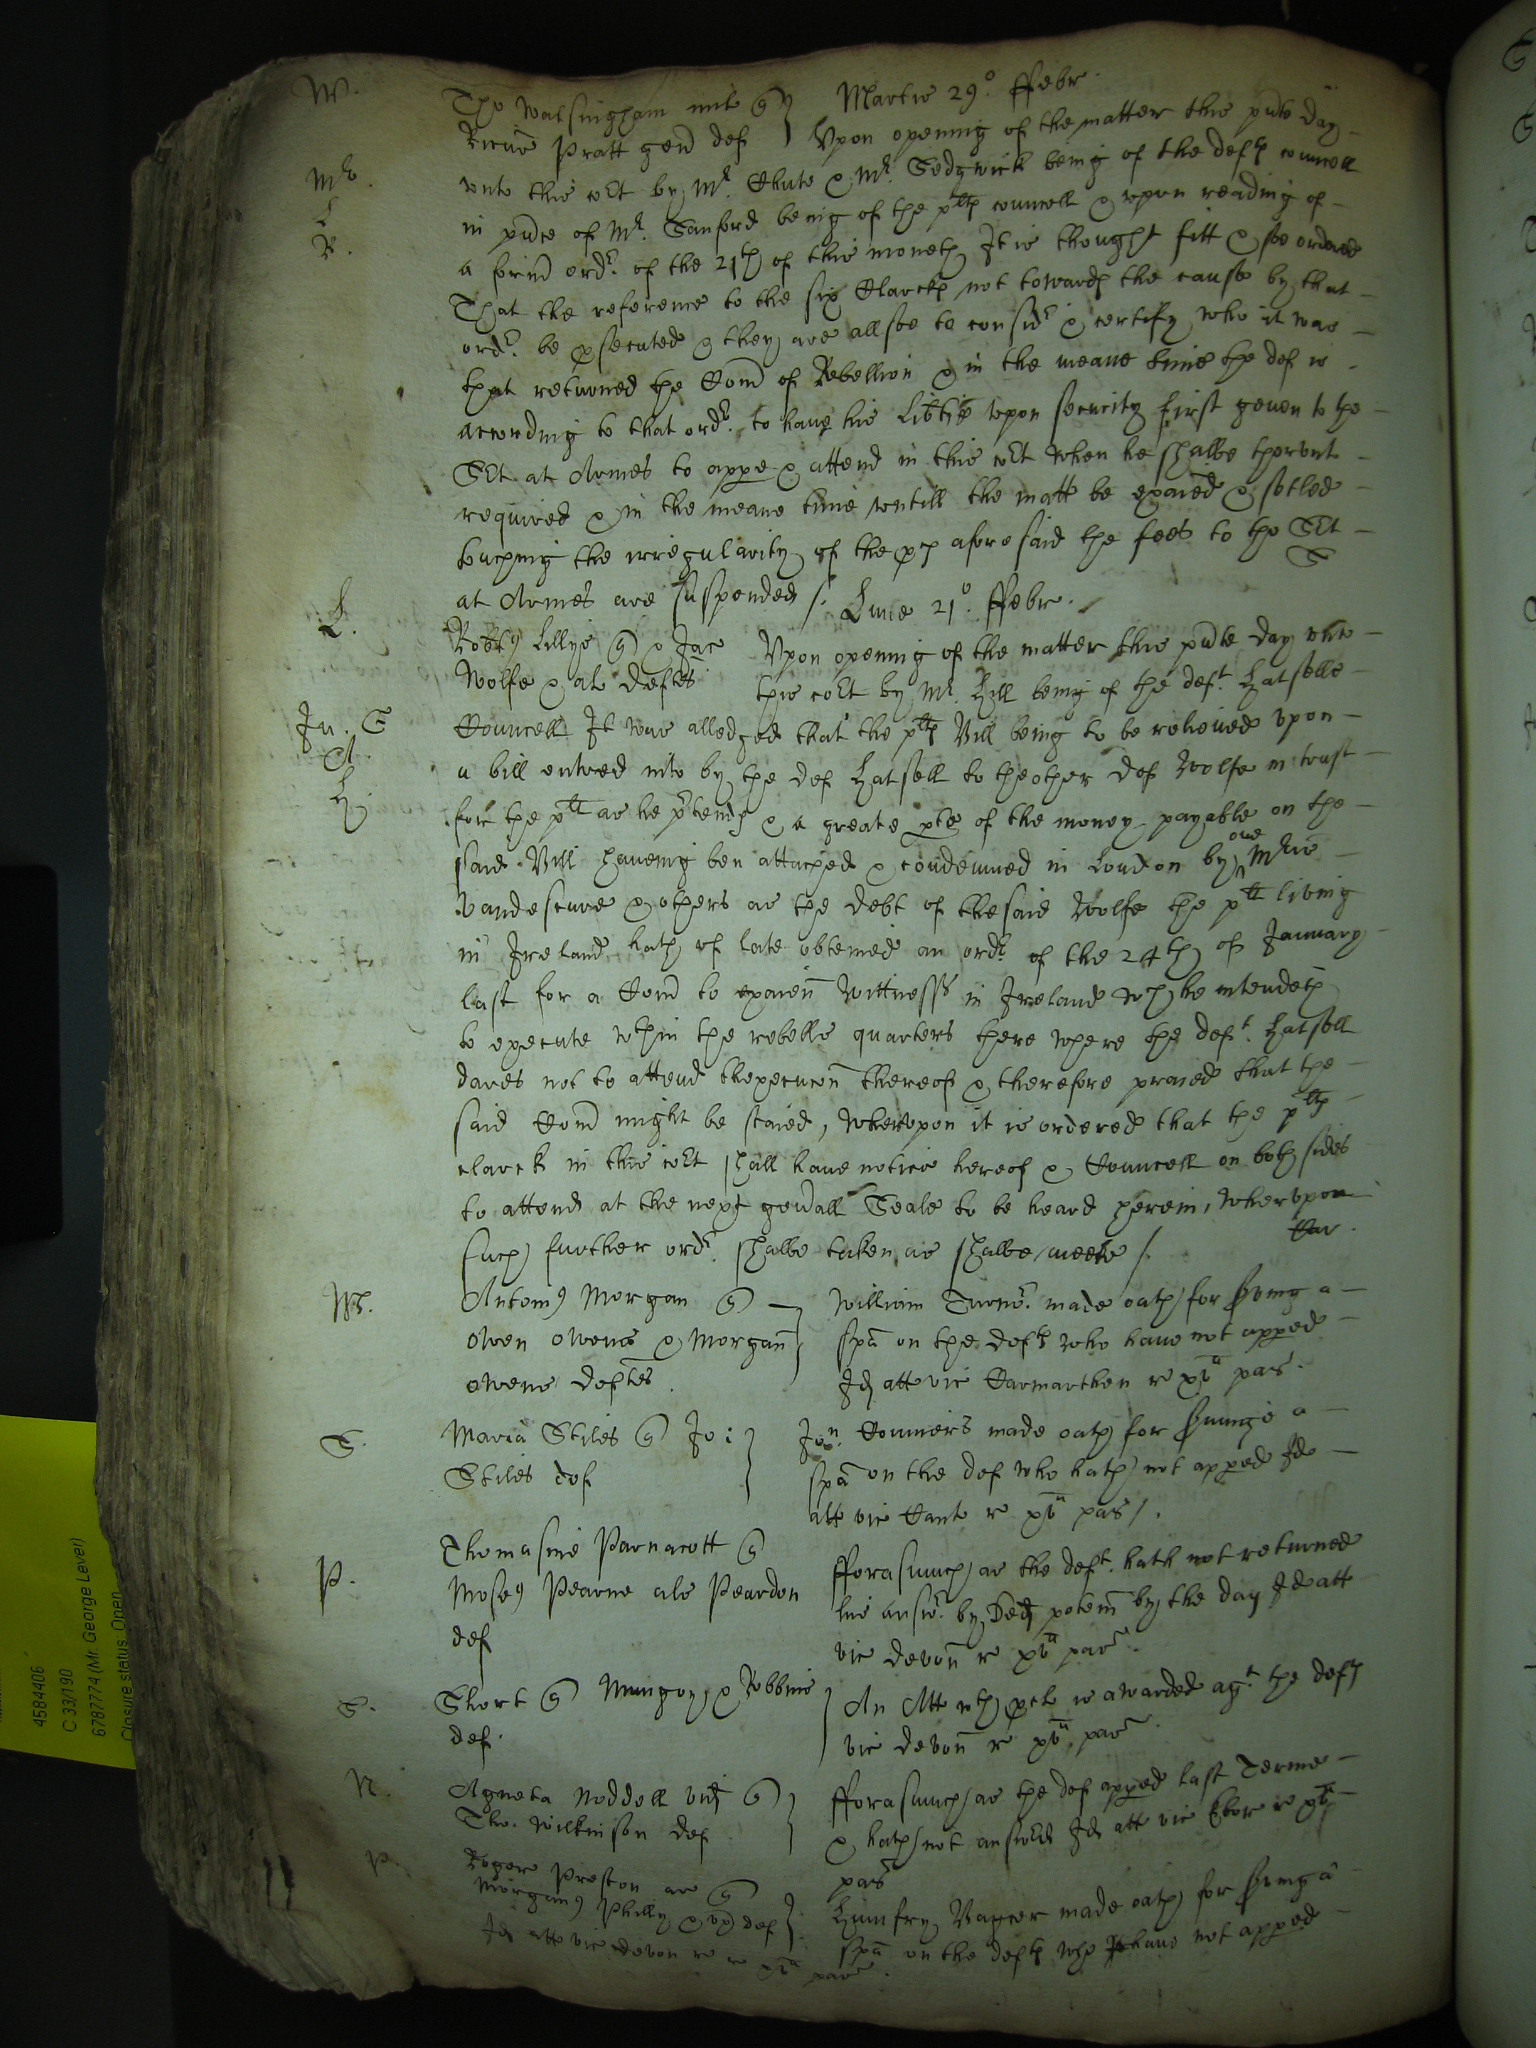 W.
Tho Walsingham mil q Martis 29o. ffebr.
Pratt gen def Upon opening of the matter this pnte day
Mr.
unto this Cort by Mr. Chute & Mr. Sedgwick being of the defts councell
L
in pnce of Mr. Sanford being of the plts councell & upon reading of
R.
a form ordr. of the 21th of this moneth It is thought fitt & soe ordered
That the reference to the six Clarcks not towards the cause by that
ordr. be psecuted & they are allsoe to considr & certify who it was
that returned the Com of Rebellion & in the meane time the def is
according to that ordr. to have his libtie upon security first geven to the
Sct at Armes to appe & attend in this cort when he shalbe therunto
required & in the meane time untill the matt be exaied & setled
touching the irregularity of the aforesaid the fees to the Sct
at Armes are suspended /. S
L. Lune 21o. ffebr.
Robts Lillye q & Jac Upon opening of the matter this pnte day unto
Wolfe & als deftes this cort by Mr. Hill being of the deft. Hatsells
Ju. S
Councell It was alledged that the plts Bill being to be releived upon
A.
a bill entred into by the def Hatsell to the other def Wolfe in trust
H
for the plt as he ptends & a greate pte of the money payable on the
said Bill haveing ben attached & condemned in London by one Mris
Vandescure & others as the debt of the said Wolfe the plt living
in Ireland hath of late obteined an ordr. of the 24th of January
last for a Com to exaien Wittnesses in Ireland wch he intendeth
to execute wthin the rebells quarters there where the deft. Hatsell
dares not to attend thexecucon thereof & therefore praied that the
said Com might be staied, wherupon it is ordered that the plts
clarck in this cort shall have notice hereof & Councell on both sides
to attend at the next genall Seale to be heard herein, wherupon
such further ordr. shalbe taken as shalbe meete /.
Antoni9 Morgan q William Turnor. made oath for sving a
Owen Owens & Morgan spa on the defts who have not apped
owens deftes. Id att vic Carmarthen re xva pas.
S. Maria Stiles q Jo: Jon. Conniers made oath for svinge a
Stiles def spa on the def who hath not apped Ide
att vic Cant re xva pas /.
P. Thomasine Parnacott q fforasmuch as the deft. hath not returned
Moses Pearne als Peardon his answr. by Ded potem by the day Id att
def vic devon re xva pas.
S. Short q Mungoy & Robbins An Att wth pclo is awarded agt. the defts
def. vic devon re xva pas
N. Agneta Noddell vid q fforasmuch as the def apped last Terme
Tho. Wilkinson def & hath not answed Id att vic Ebor re xva
pas
P. Roger Preston ar q Humfry made oath for sving a
Morgan9 Philly & ux def spa on the defts who have not apped
Id att vic devon re xva pas.
4584406
C 33/190
6787774 (Mr. George Lever)
Closure status: Open